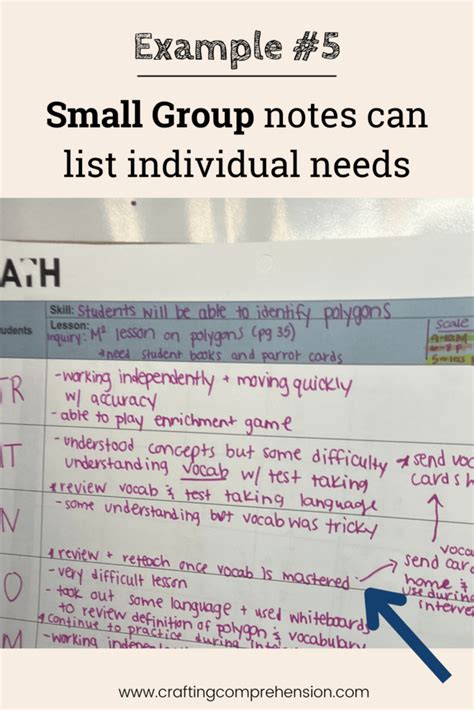 Example #5
Small Group notes can
list individual needs
ATH
Skill: Students will be able to identify polygons
udents
Lesson:
inquiry: M² lesson on polygons (pg 35)
*need student books and parrot cards
Scale
TR
-working independently + moving quickly
w/ accuracy
-able to play enrichment game
IT
-understood concepts but some difficulty
understanding vocab w/ test taking
*review vocab & test taking language
→ send voc
cards h
N
-some understanding but vocab was tricky
*review + reteach once vocab is mastered
voca
send car
home &
use during
interve
O
-very difficult lesson
-took out some language + used whiteboards
to review definition of polygon & vocabulary
*continue to practice during
M
-working indepen
www.craftingcomprehension.com